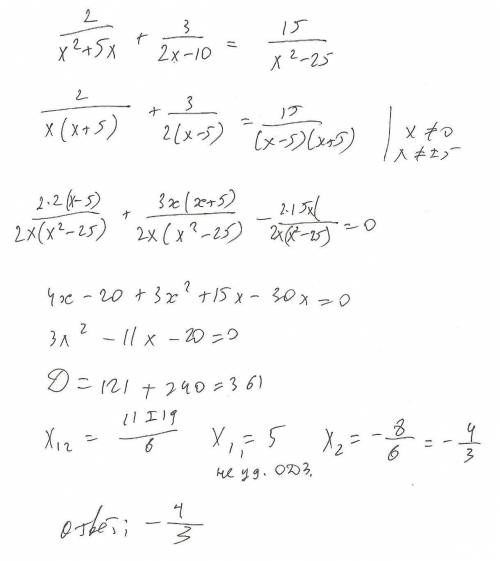 2/(x²+5x) + 3/(2x-10) = 15/(x²-25)
2/(x(x+5)) + 3/(2(x-5)) = 15/((x-5)(x+5)) | x≠0
x≠±5
2·2(x-5)/(2x(x²-25)) + 3x(x+5)/(2x(x²-25)) - 2·15x/(2x(x²-25)) = 0
4x - 20 + 3x² + 15x - 30x = 0
3x² - 11x - 20 = 0
D = 121 + 240 = 361
x₁₂ = (11±19)/6 x₁ = 5 x₂ = -8/6 = -4/3
не уд. ОДЗ.
ответ: -4/3